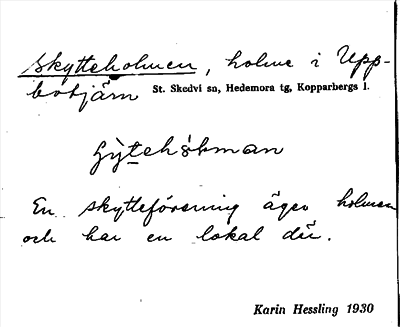 Skytteholmen, holme i Upp-
botjärn St. Skedvi sn, Hedemora tg, Kopparbergs l.
En skytteförening äger holmen
och har en lokal där.
Karin Hessling 1930